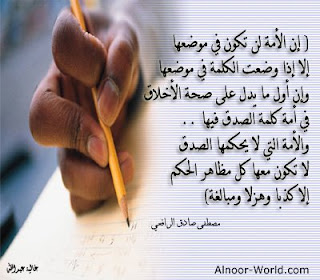 ( إن الأمة لن تكون في موضعها
إلا إذا وضعت الكلمة في موضعها
وإن أول ما يدل على صحة الأخلاق
في أمة كلمة الصدق فيها . .
والأمة التي لا يحكمها الصدق
لا تكون معها كل مظاهر الحكم
إلا كذبا وهزلا ومبالغة)
مصطفى صادق الرافعي
Alnoor-World.com